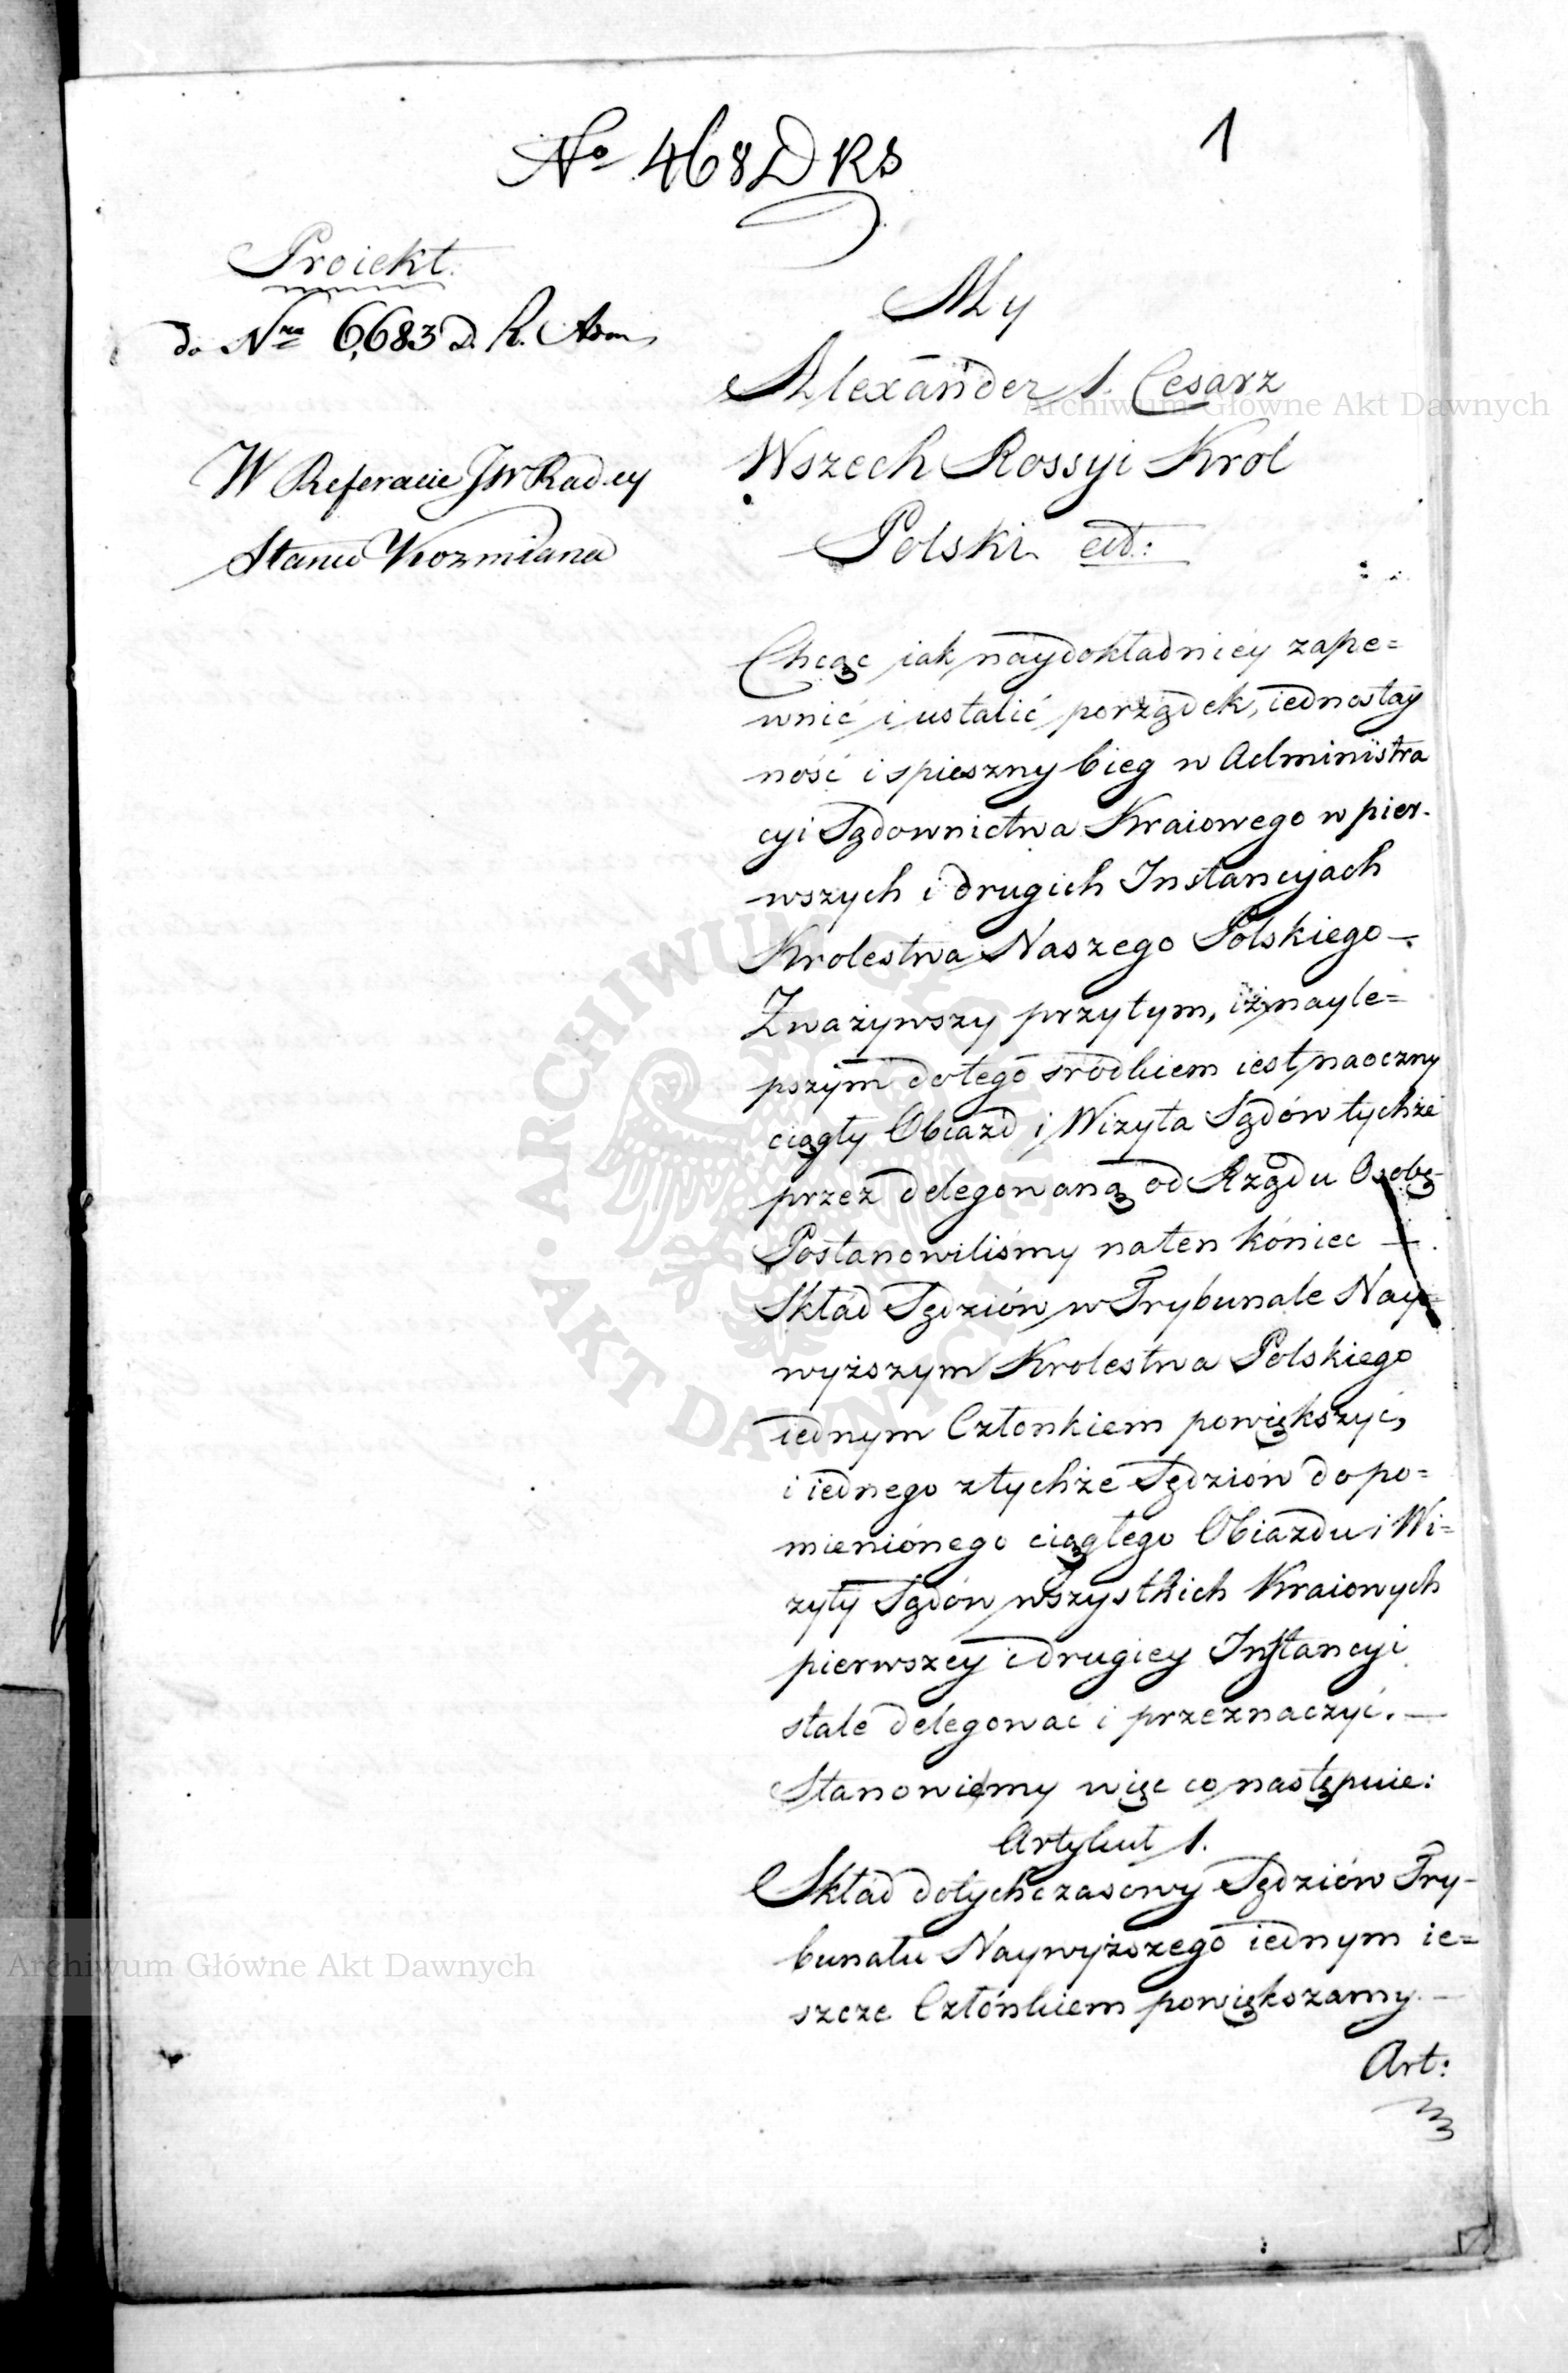 No 468 D R S
1
Proiekt.
do Nra 6,683 D. R. Adm
W Referacie JW Radcy
Stanu Kozmiana
My
Alexander I. Cesarz
Wszech Rossyi Krol
Polski etd:
Chcąc iak naydokładniéy zape=
wnić i ustalić porządek, iednostay
ność i spieszny bieg w Administra
cyi Sądownictwa Kraiowego w pier-
wszych i drugich Instancyjach
Krolestwa Naszego Polskiego —
Zważywszy przytym, iż nayle=
pszym do tego srodkiem iest naoczny
ciągły Obiazd i Wizyta Sądów tychże
przez delegowaną od Rządu Osobę
Postanowilismy na ten koniec —
Skład Sędziów w Trybunale Nay=
wyższym Krolestwa Polskiego
iednym Członkiem powiększyć,
i iednego z tychże Sędziów do po=
mienionego ciągłego Obiazdu i Wi=
zyty Sądów wszystkich Kraiowych
pierwszey i drugiey Instancyi
stale delegować i przeznaczyć. —
Stanowiemy więc co następuie:
Artykuł 1.
Skład dotychczasowy Sędziów Try-
bunału Naywyższego iednym ie=
szcze Członkiem powiększamy. —
Art:
Archiwum Główne Akt Dawnych
Archiwum Główne Akt Dawnych
ARCHIWUM GŁÓWNE · AKT DAWNYCH ·